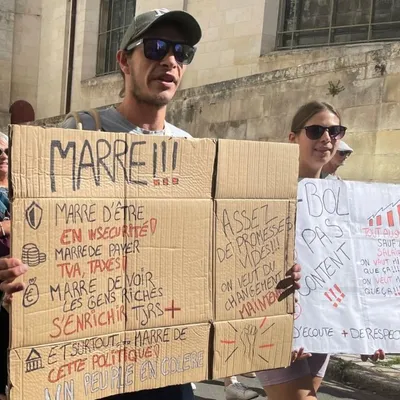 MARRE!!!
MARRE D'ÊTRE
EN INSECURITÉ!
MARRE DE PAYER
TVA, TAXES!
MARRE DE VOIR
LES GENS RICHES
S'ENRICHIR TJRS +
ET SURTOUT... MARRE DE
CETTE POLITIQUE!
UN PEUPLE EN COLERE
ASSEZ
DE PROMESSES
VIDES!!!
ON VEUT DU
CHANGEMENT
MAINTENANT
-BOL
PAS
CONTENT
!!!
SAUF
SALAIRE
ON VAUT
QUE ÇA!!!
ON VEUT
QUE ÇA!!!
D'ÉCOUTE + DE RESPECT